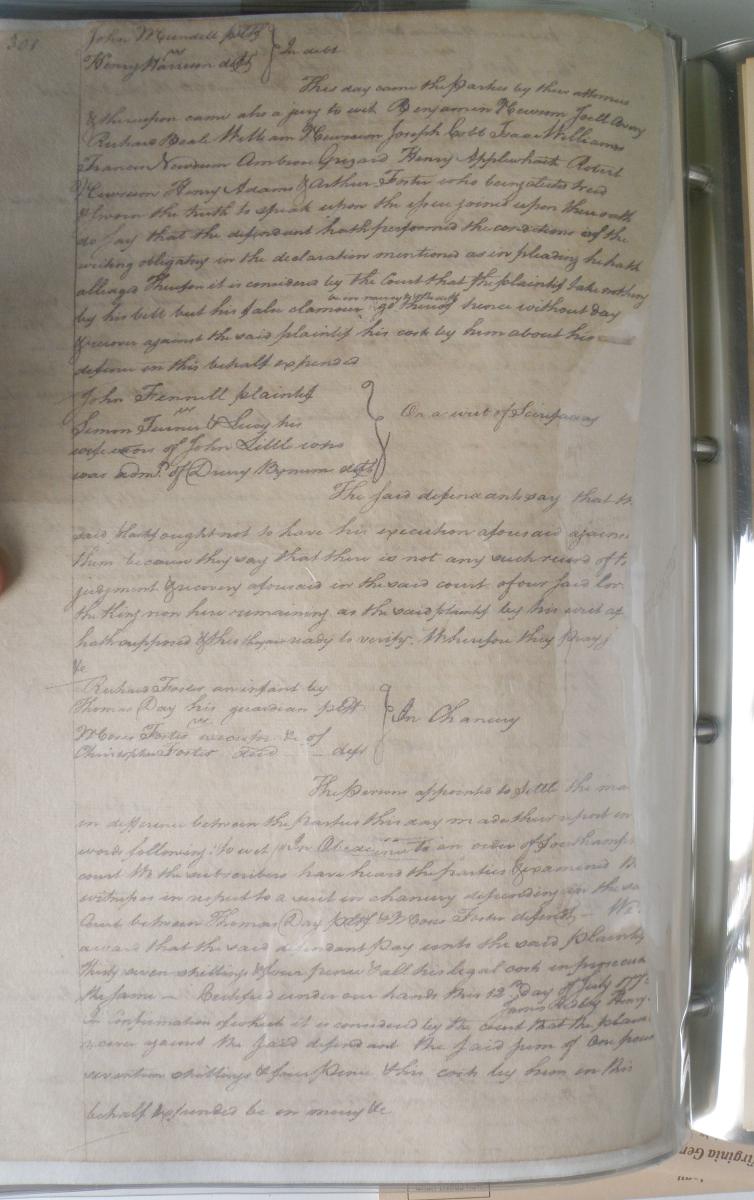 301
John Mundell pltff
vs
Henry Harrison deft
In debt
This day came the Parties by their attornies
& thereupon came also a jury to wit Benjamin Newsom Joell Avery
Richard Beale William Newsom Joseph Cobb Isaac Williams
Francis Newsum Ambrose Grizard Henry Applewhaite Robert
Newsom Henry Adams & Arthur Foster who being elected tried
& sworn the truth to speak upon the issue joined upon their oath
do say that the defendant hath performed the conditions of the
writing obligatory in the declaration mentioned as in pleading he hath
alledged Therefore it is considered by the Court that the plaintif take nothing
by his bill but his false clamour be in mercy & the deft go thereof hence without day
& recover against the said plaintif his costs by him about his
defence in this behalf expended
John Fennell plaintif
vs
Simon Turner & Lucy his
wife of John Little who
was admr. of Drury Bynum defts
On a writ of Scirefacias
The said defendants say that th
said plaintif ought not to have his execution aforesaid agains
them because they say that there is not any such record of th
judgment & recovery aforesaid in the said court of our said lor
the King now here remaining as the said plaintif by his writ af
hath supposed & this they are ready to verify. Wherefore they pray j
&c
Richard Foster an infant by
Thomas Day his guardian pltff
vs
Moses Foster executor &c of
Christopher Foster deced deft
In Chancery
The Persons appointed to settle the ma
in difference between the Parties this day made their report in
words following to wit In Obedience to an order of Southampt
court We the subscribers have heard the parties & examined th
witnesses in respect to a suit in chancery depending in the sa
Court between Thomas Day pltff & Moses Foster defendt – We
award that the said defendant pay unto the said Plaintif
thirty seven shillings & four pence & all his legal costs in prosecu
the same – Certified under our hands this 12th day of July 177
James Ridley Henry
In confirmation of which it is considered by the court that the plain
recover against the said defendant the said sum of One poun
seventeen shillings & four Pence & his costs by him in this
behalf expended be in mercy &c
Virginia Ger